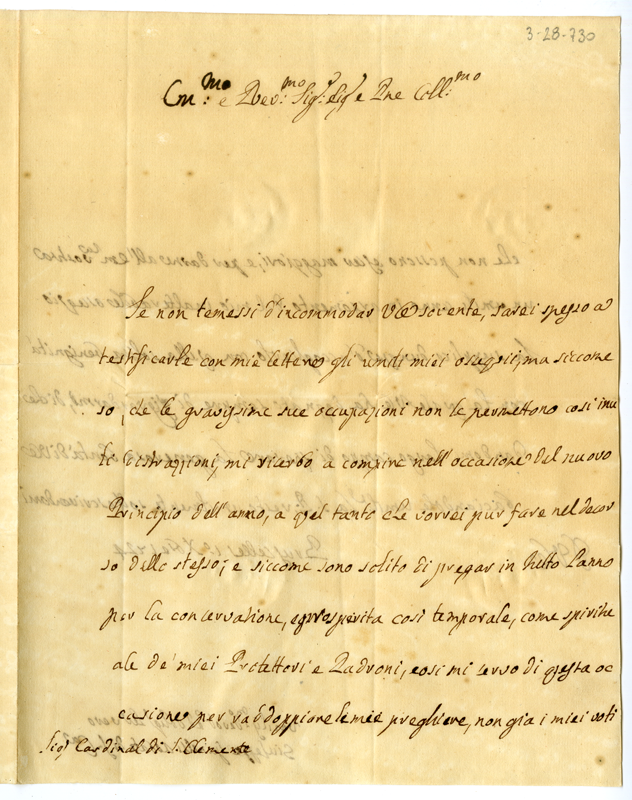 3-28-730
Em:mo e Rev:mo Sig:r Sig:r e Pne Coll:mo
Se non temessi d'incommodar V.E. sovente, sarei spesso a
testificarle con mie lettere gli umili miei ossequi, ma siccome
so, che le gravissime sue occupazioni non le permettono così inu
tili distrazzioni, mi riserbo a compire nell'occasione del nuovo
Principio dell'anno, a quel tanto che vorrei pur fare nel decor
so dello stesso; e siccome sono solito di pregar in tutto l'anno
per la conservazione, e prosperità così temporale, come spiritu
ale de' miei Protettori e Padroni, così mi servo di questa oc
casione per raddoppiare le mie preghiere, non già i miei voti
Sig.r Cardinal di S. Clemente